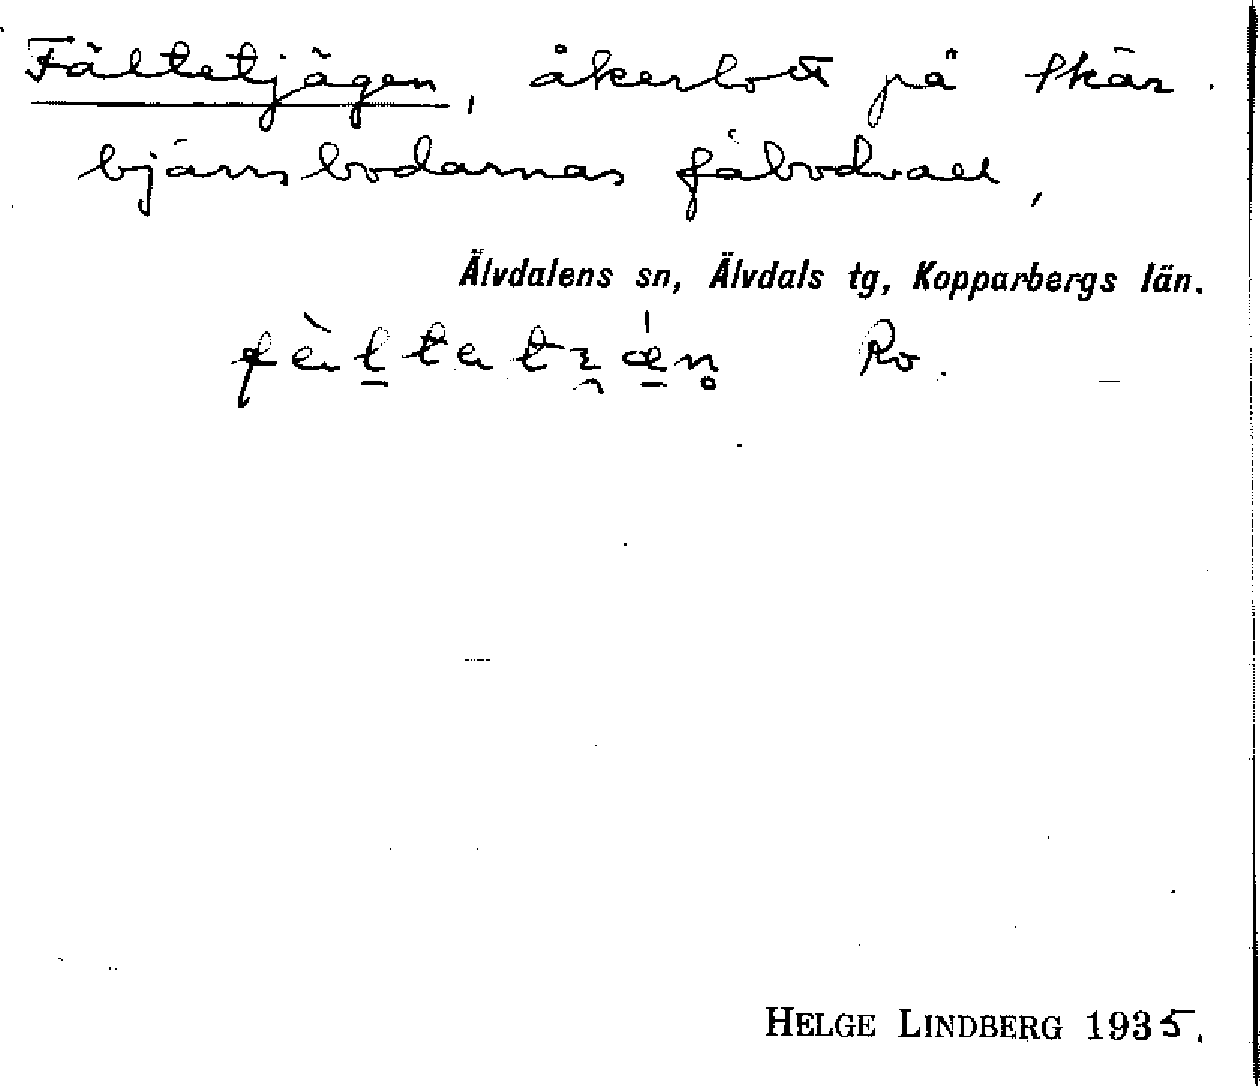 Fältetjägen, åkerlott på Skär-
bjärnsbodarnas fäbodvall,
Älvdalens sn, Älvdals tg, Kopparbergs län.
Ro.
HELGE LINDBERG 1935.